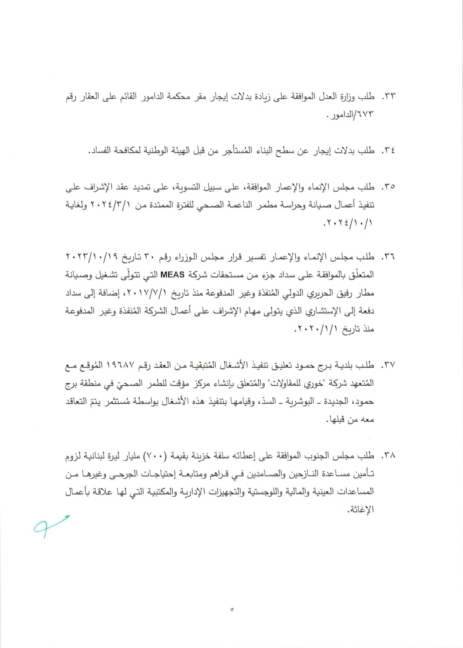 ٣٣. طلب وزارة العدل الموافقة على زيادة بدلات إيجار مقر محكمة الدامور القائم على العقار رقم
٦٧٣/الدامور .
٣٤. طلب بدلات إيجار عن سطح البناء المُستأجر من قبل الهيئة الوطنية لمكافحة الفساد.
٣٥. طلب مجلس الإنماء والإعمار الموافقة، على سبيل التسوية، على تمديد عقد الإشراف على
تنفيذ أعمال صيانة وحراسة مطمر الناعمة الصحي للفترة الممتدة من ٢٠٢٤/٣/١ ولغاية
٢٠٢٤/١٠/١.
٣٦. طلب مجلس الإنماء والإعمار تفسير قرار مجلس الوزراء رقم ٣٠ تاريخ ٢٠٢٣/١٠/١٩
المتعلّق بالموافقة على سداد جزء من مستحقات شركة MEAS التي تتولّى تشغيل وصيانة
مطار رفيق الحريري الدولي المُنفذة وغير المدفوعة منذ تاريخ ٢٠١٧/٧/١، إضافة إلى سداد
دفعة إلى الإستشاري الذي يتولى مهام الإشراف على أعمال الشركة المُنفذة وغير المدفوعة
منذ تاريخ ٢٠٢٠/١/١.
٣٧. طلب بلدية برج حمود تعليق تنفيذ الأشغال المُتبقية من العقد رقم ١٩٦٨٧ المُوقع مع
المُتعهد شركة "خوري للمقاولات" والمُتعلق بإنشاء مركز مؤقت للطمر الصحيّ في منطقة برج
حمود، الجديدة ـ البوشرية ـ السدّ، وقيامها بتنفيذ هذه الأشغال بواسطة مُستثمر يتمّ التعاقد
معه من قبلها.
٣٨. طلب مجلس الجنوب الموافقة على إعطائه سلفة خزينة بقيمة (٧٠٠) مليار ليرة لبنانية لزوم
تأمين مساعدة النازحين والصامدين في قراهم ومتابعة إحتياجات الجرحى وغيرها من
المساعدات العينية والمالية واللوجستية والتجهيزات الإدارية والمكتبية التي لها علاقة بأعمال
الإغاثة.
٥